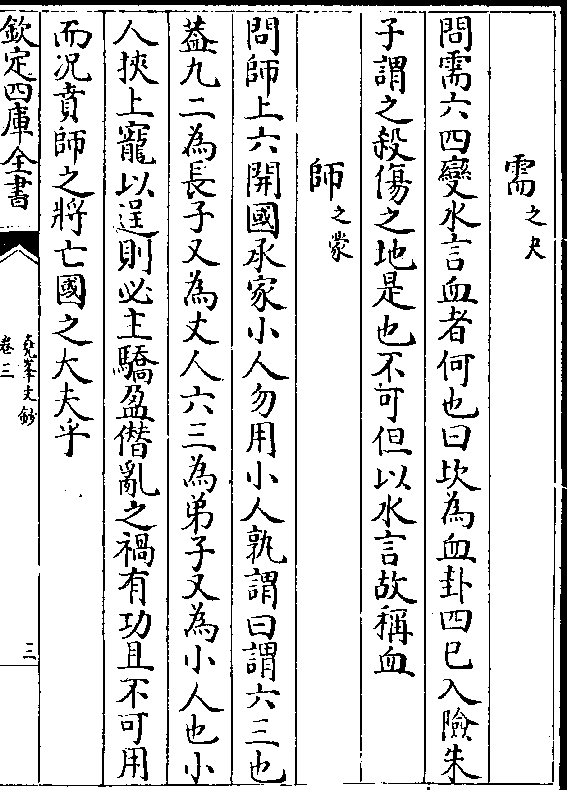 需之夬
問需六四變水言血者何也曰坎為血卦四已入險朱
子謂之殺傷之地是也不可但以水言故稱血
師之蒙
問師上六開國承家小人勿用小人孰謂曰謂六三也
葢九二為長子又為丈人六三為弟子又為小人也小
人挾上寵以逞則必主驕盈僭亂之禍有功且不可用
而况賁師之將亡國之大夫乎
欽定四庫全書
堯峯文鈔
卷三
三